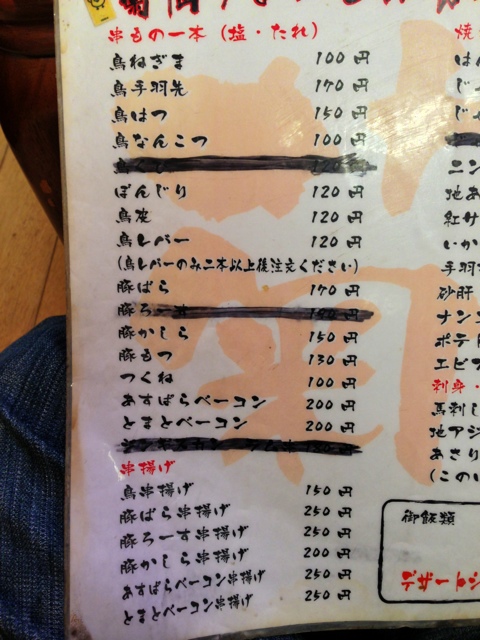 串もの一本（塩・たれ）
鳥ねぎま 100円
鳥手羽先 170円
鳥はつ 150円
鳥なんこつ 100円
ぼんじり 120円
鳥皮 120円
鳥レバー 120円
(鳥レバーのみ二本以上後注文ください)
豚ばら 170円
豚ろーす 180円
豚かしら 150円
豚もつ 130円
つくね 100円
あすぱらベーコン 200円
とまとベーコン 200円
串揚げ
鳥串揚げ 150円
豚ばら串揚げ 250円
豚ろーす串揚げ 250円
豚かしら串揚げ 200円
あすぱらベーコン串揚げ 250円
とまとベーコン串揚げ 250円
焼
ニン
地あ
紅サ
いか
手羽
砂肝
ナンコ
ポテト
エビフ
刺身・
馬刺し
地アジ
あさり
(このい
御飯類
デザート